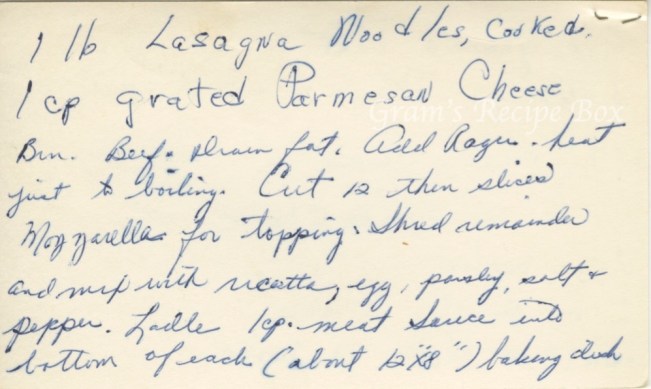 1 lb Lasagna Noodles, cooked.
1 cp grated Parmesan Cheese
Gram's Recipe Box
Brn. Beef. Drain fat. Add Ragu. heat
just to boiling. Cut 12 thin slices
Mozzarella for topping. Shred remainder
and mix with ricotta, egg, parsley, salt +
pepper. Ladle 1cp. meat sauce into
bottom of each (about 12"x8") baking dish